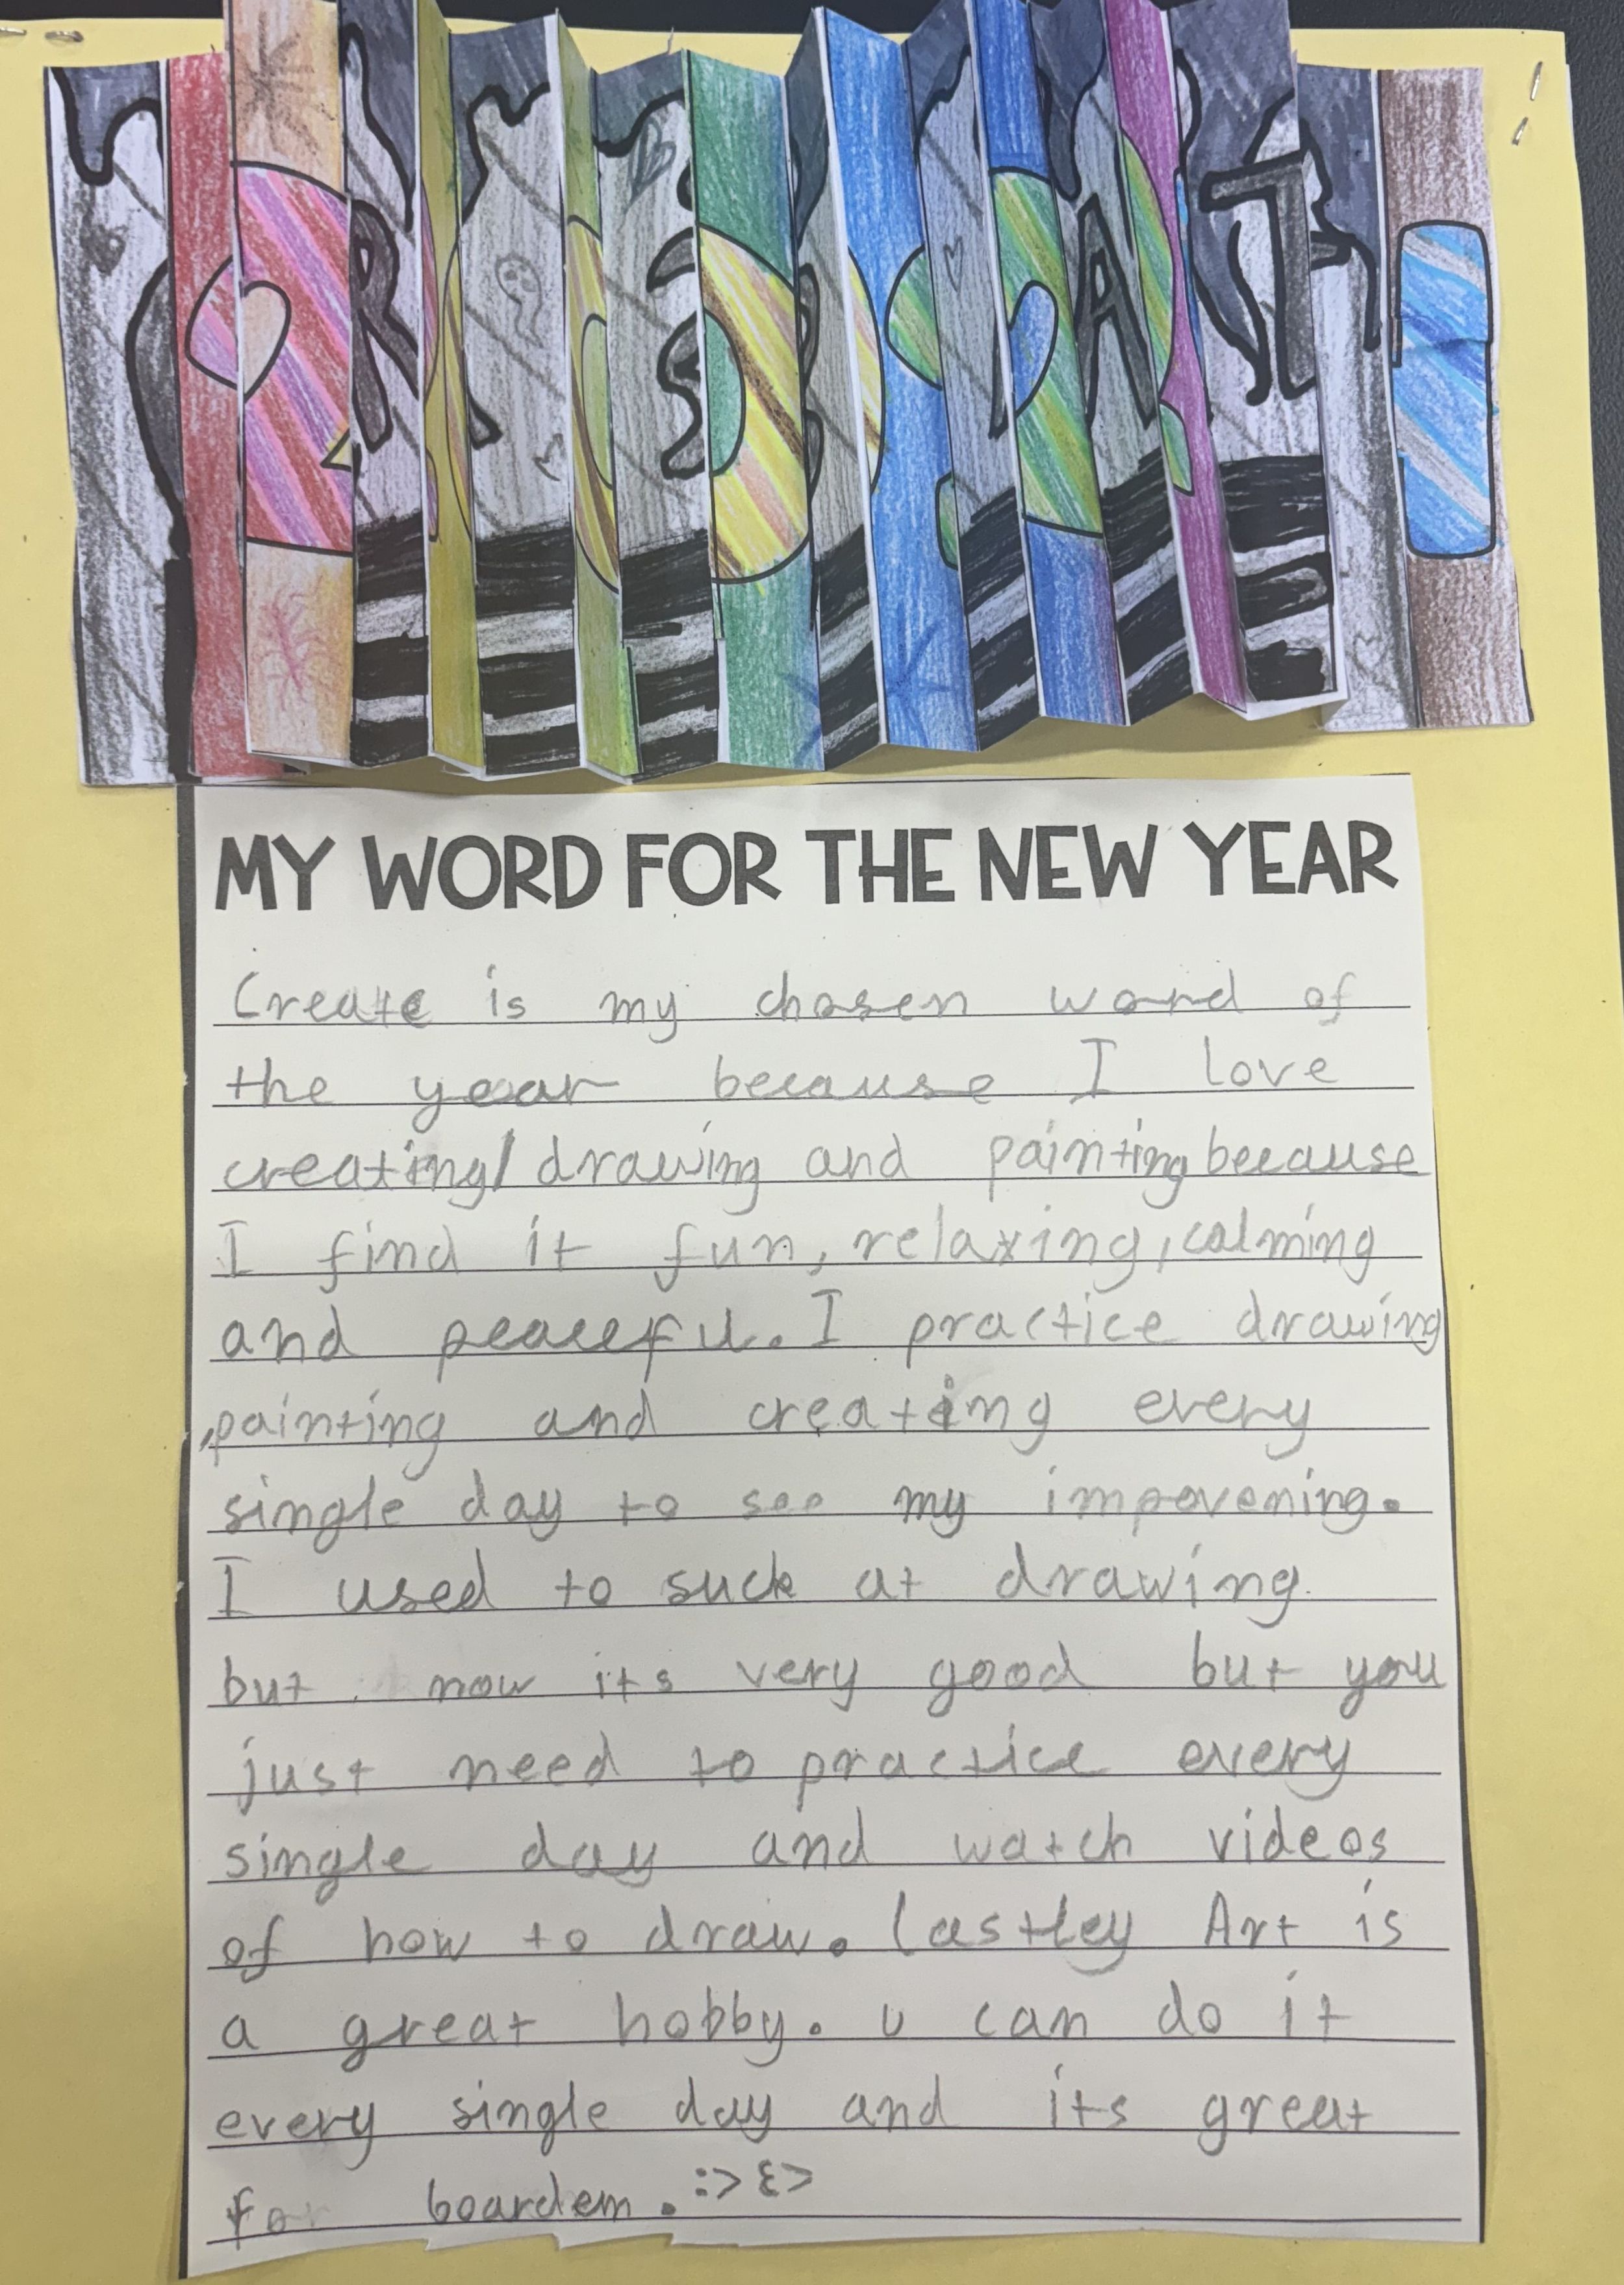 MY WORD FOR THE NEW YEAR
Create is my chosen word of
the year because I love
creating/drawing and painting because
I find it fun, relaxing, calming
and peacefu. I practice drawing
,painting and creating every
single day to see my impovening.
I used to suck at drawing.
but now its very good but you
just need to practice every
single day and watch videos
of how to draw. lastley Art is
a great hobby. u can do it
every single day and its great
for boardem. :> ε>